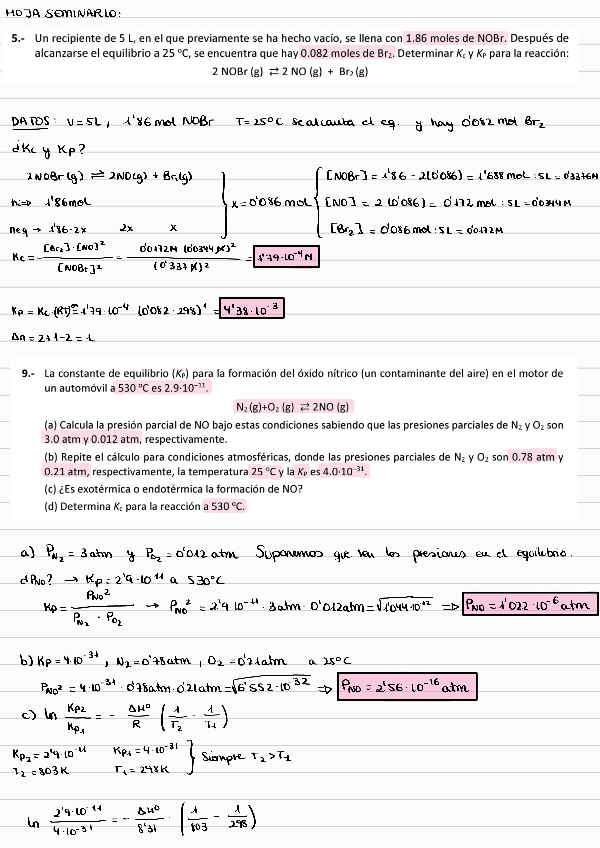 HOJA SEMINARIO:
5.- Un recipiente de 5 L, en el que previamente se ha hecho vacío, se llena con 1.86 moles de NOBr. Después de
alcanzarse el equilibrio a 25 ºC, se encuentra que hay 0.082 moles de Br₂. Determinar Kc y KP para la reacción:
2 NOBr (g) ⇄ 2 NO (g) + Br₂ (g)
DATOS: V=5L, 1'86 mol NOBr T=25ºC se alcanza el eq. y hay 0'082 mol Br₂
d Kc y Kp?
2NOBr(g) ⇌ 2NO(g) + Br₂(g)
n⇒ 1'86mol
neq → 1'86-2x 2x x
x=0'086 mol
[NOBr] = 1'86 - 2(0'086) = 1'688 mol : 5L = 0'3376M
[NO] = 2 (0'086) = 0'172 mol : 5L = 0'0344M
[Br₂] = 0'086 mol : 5L = 0'0172M
Kc = [Br₂]·[NO]² / [NOBr]² = 0'0172M (0'0344 M)² / (0'337 M)² = 1'79·10⁻⁴ M
Kp = Kc·(RT)^Δn = 1'79·10⁻⁴ · (0'082 · 298)¹ = 4'38·10⁻³
Δn = 2+1-2 = 1
9.- La constante de equilibrio (KP) para la formación del óxido nítrico (un contaminante del aire) en el motor de
un automóvil a 530 ºC es 2.9·10⁻¹¹.
N₂ (g)+O₂ (g) ⇄ 2NO (g)
(a) Calcula la presión parcial de NO bajo estas condiciones sabiendo que las presiones parciales de N₂ y O₂ son
3.0 atm y 0.012 atm, respectivamente.
(b) Repite el cálculo para condiciones atmosféricas, donde las presiones parciales de N₂ y O₂ son 0.78 atm y
0.21 atm, respectivamente, la temperatura 25 ºC y la KP es 4.0·10⁻³¹.
(c) ¿Es exotérmica o endotérmica la formación de NO?
(d) Determina Kc para la reacción a 530 ºC.
a) P_N₂ = 3 atm y P_O₂ = 0'012 atm Suponemos que son las presiones en el equilibrio.
d P_NO? → Kp = 2'9·10⁻¹¹ a 530ºC
Kp = P_NO² / P_N₂ · P_O₂ → P_NO² = 2'9·10⁻¹¹ · 3atm · 0'012atm = √1'044·10⁻¹² ⇒ P_NO = 1'022·10⁻⁶ atm
b) Kp = 4·10⁻³¹, N₂ = 0'78 atm, O₂ = 0'21 atm a 25ºC
P_NO² = 4·10⁻³¹ · 0'78atm · 0'21atm = √6'552·10⁻³² ⇒ P_NO = 2'56·10⁻¹⁶ atm
c) ln Kp₂/Kp₁ = - ΔHº/R (1/T₂ - 1/T₁)
Kp₂ = 2'9·10⁻¹¹ Kp₁ = 4·10⁻³¹
T₂ = 803K T₁ = 298K
Siempre T₂ > T₁
ln 2'9·10⁻¹¹ / 4·10⁻³¹ = - ΔHº/8'31 · (1/803 - 1/298)